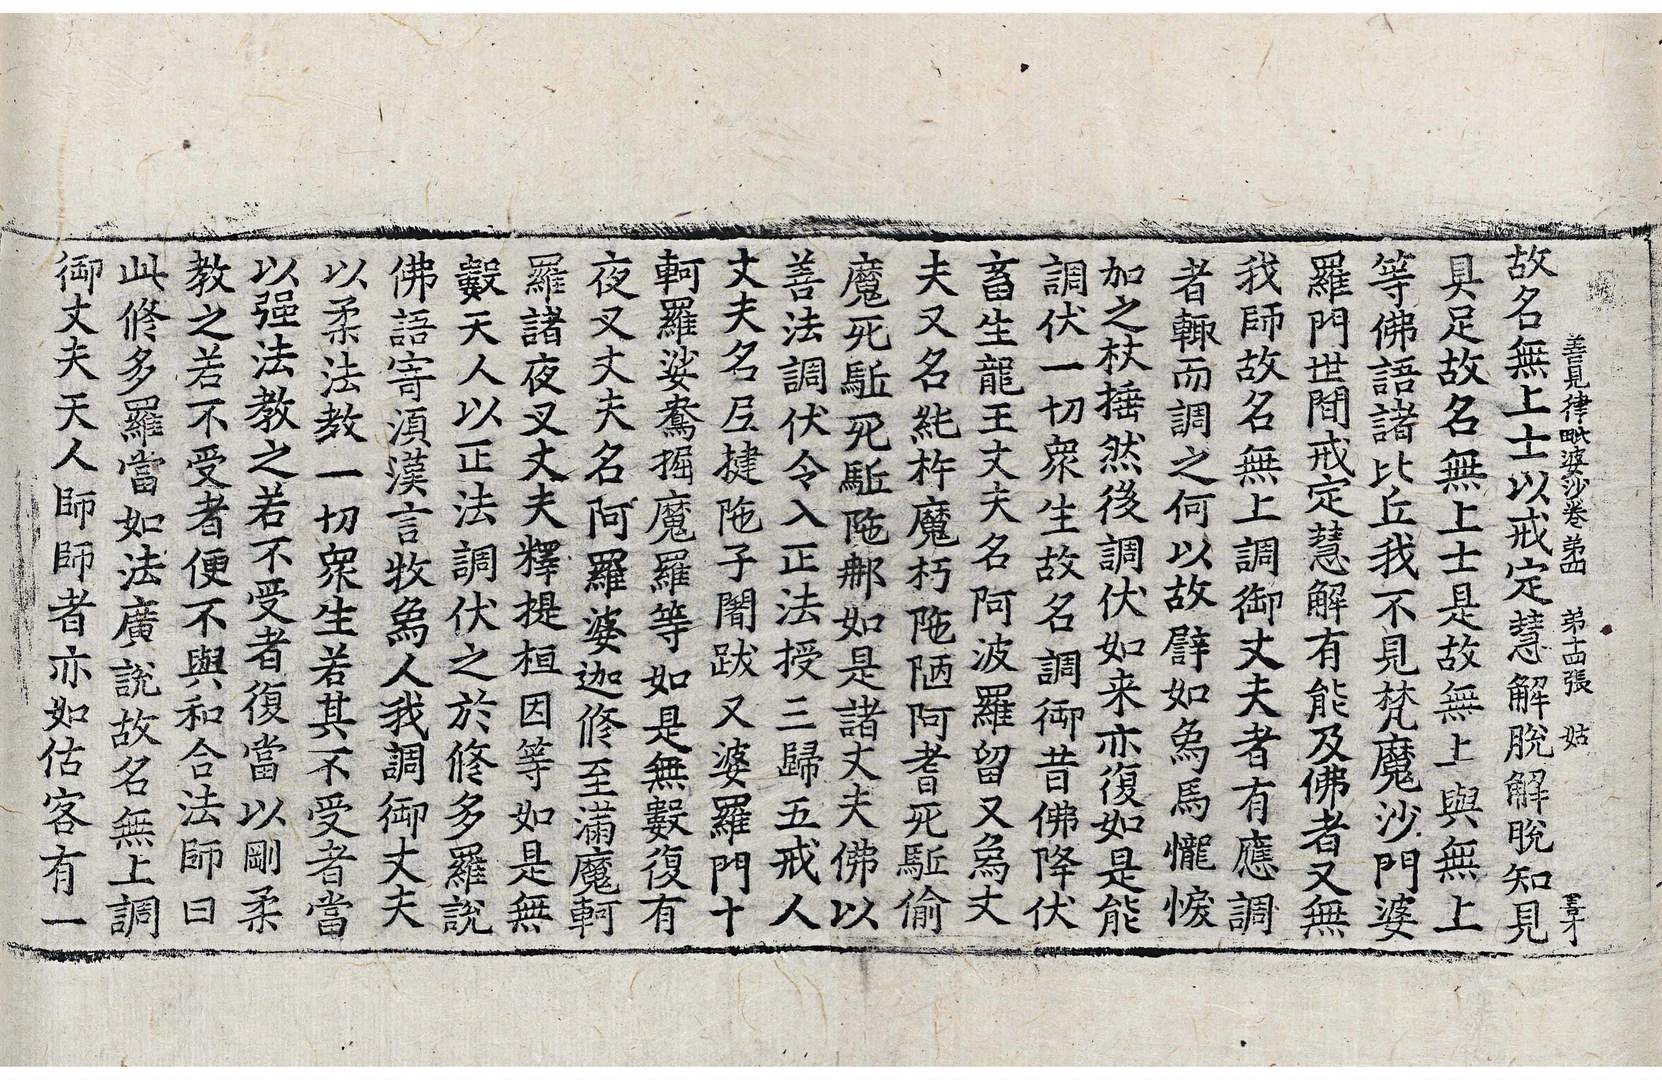 善見律毗婆沙卷弟四 弟十四張 姑
故名無上士以戒定慧解脫解脫知見
具足故名無上士是故無上與無上
等佛語諸比丘我不見梵魔沙門婆
羅門世間戒定慧解有能及佛者又無
我師故名無上調御丈夫者有應調
者輒而調之何以故譬如象馬㦬悷
加之杖捶然後調伏如来亦復如是能
調伏一切衆生故名調御昔佛降伏
畜生龍王丈夫名阿波羅留又象丈
夫又名純杵魔朽陁陋阿耆死駈偷
魔死駈死駈陁那如是諸丈夫佛以
善法調伏令入正法授三歸五戒人
丈夫名尼揵陁子闍跋又婆羅門十
軻羅娑鴦掘魔羅等如是無數復有
夜叉丈夫名阿羅婆迦修至滿魔軻
羅諸夜叉丈夫釋提桓因等如是無
數天人以正法調伏之於修多羅說
佛語寄湏漢言牧象人我調御丈夫
以柔法教一切衆生若其不受者當
以强法教之若不受者復當以剛柔
教之若不受者便不與和合法師曰
此修多羅當如法廣說故名無上調
御丈夫天人師師者亦如估客有一